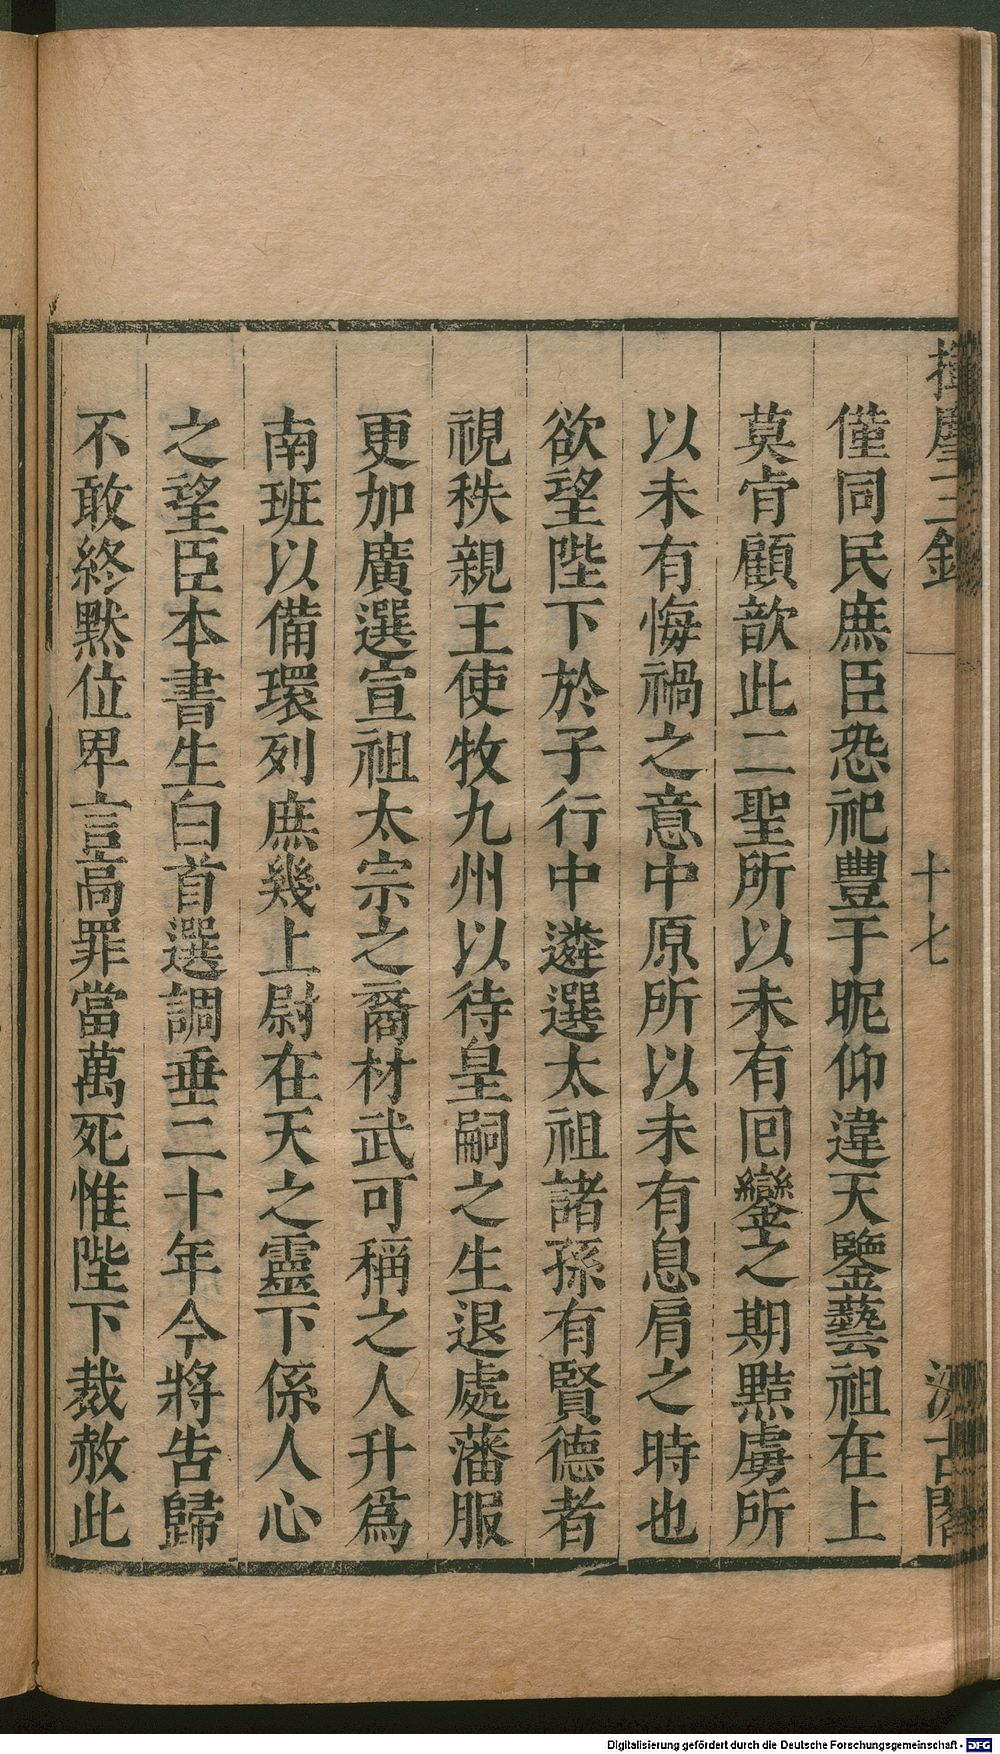 揮麈三錄
十七
汲古閣
僅同民庶臣恐祀豐于昵仰違天鑒藝祖在上
莫肯顧歆此二聖所以未有囘鑾之期黠虜所
以未有悔禍之意中原所以未有息肩之時也
欲望陛下於子行中遴選太祖諸孫有賢德者
視秩親王使牧九州以待皇嗣之生退處藩服
更加廣選宣祖太宗之裔材武可稱之人升爲
南班以備環列庶幾上尉在天之靈下係人心
之望臣本書生白首選調垂二十年今將告歸
不敢終默位卑言高罪當萬死惟陛下裁赦此
Digitalisierung gefördert durch die Deutsche Forschungsgemeinschaft - DFG